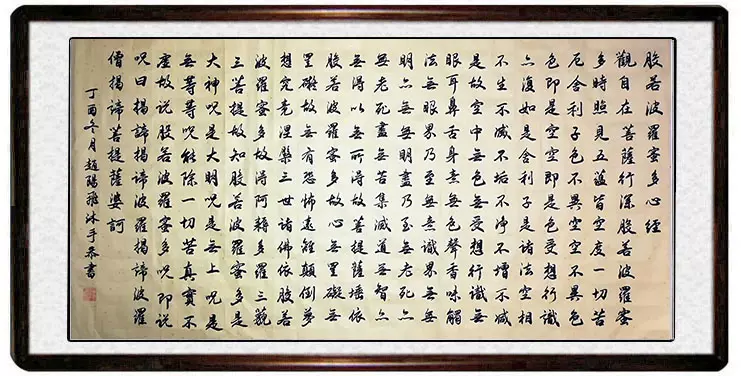 般若波羅蜜多心經
觀自在菩薩行深般若波羅蜜
多時照見五蘊皆空度一切苦
厄舍利子色不異空空不異色
色即是空空即是色受想行識
亦復如是舍利子是諸法空相
不生不滅不垢不淨不增不減
是故空中無色無受想行識無
眼耳鼻舌身意無色聲香味觸
法無眼界乃至無意識界無無
明亦無無明盡乃至無老死亦
無老死盡無苦集滅道無智亦
無得以無所得故菩提薩埵依
般若波羅蜜多故心無罣礙無
罣礙故無有恐怖遠離顛倒夢
想究竟涅槃三世諸佛依般若
波羅蜜多故得阿耨多羅三藐
三菩提故知般若波羅蜜多是
大神呪是大明呪是無上呪是
無等等呪能除一切苦真實不
虛故說般若波羅蜜多呪即說
呪曰揭諦揭諦波羅揭諦波羅
僧揭諦菩提薩婆訶
丁酉冬月趙陽飛沐手恭書